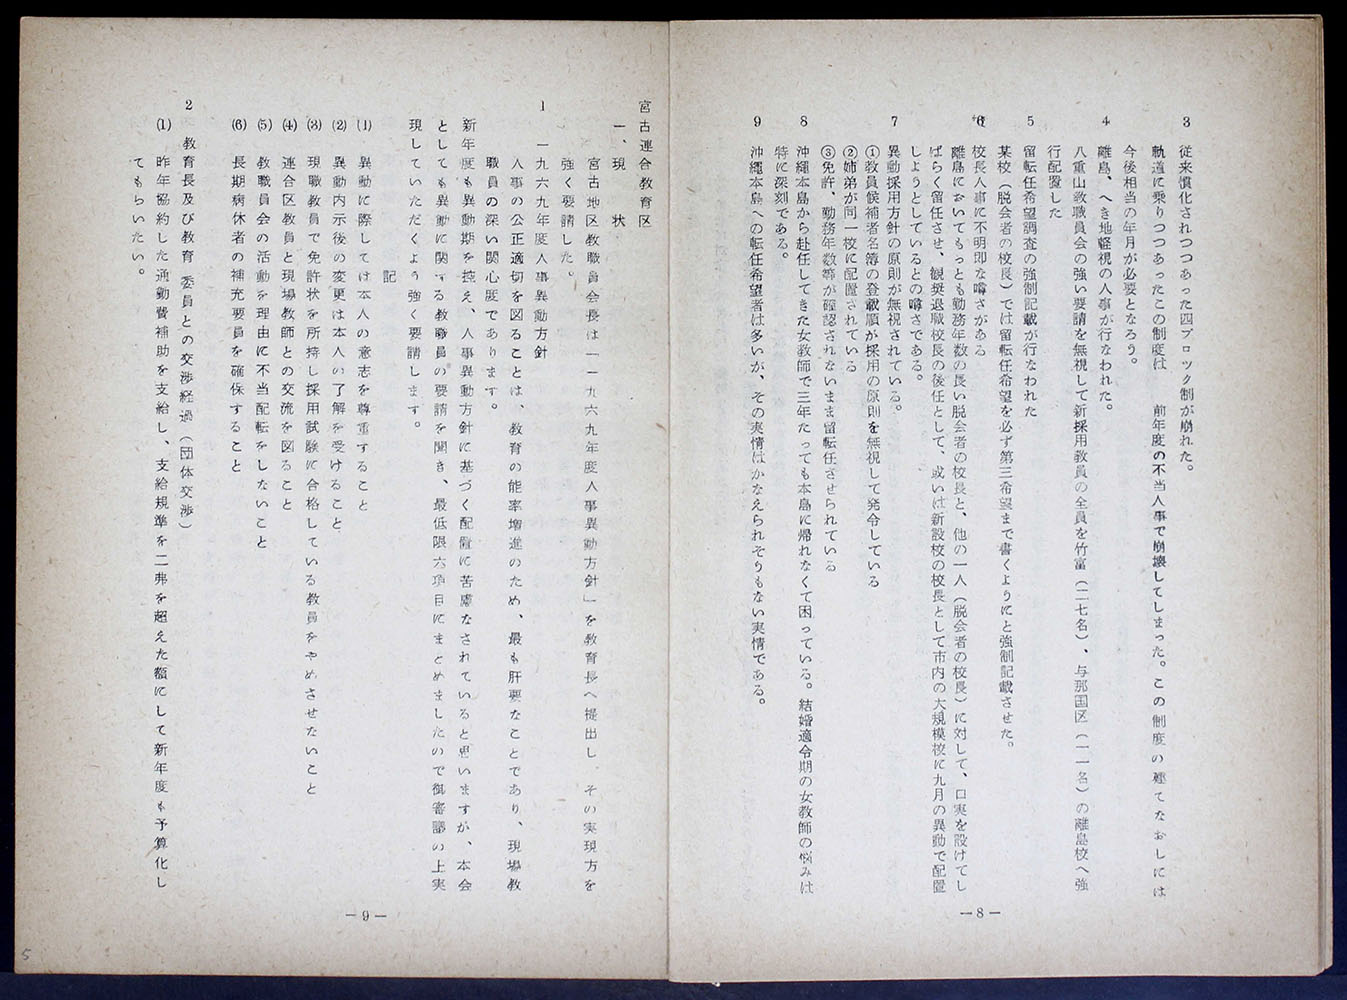 3 従来慣化されつつあった四ブロック制が崩れた。
軌道に乗りつつあったこの制度は 前年度の不当人事で崩壊してしまった。この制度の建てなおしには
今後相当の年月が必要となろう。
4 離島、へき地軽視の人事が行なわれた。
八重山教職員会の強い要請を無視して新採用教員の全員を竹富(二七名)、与那国区(一一名)の離島校へ強
行配置した
5 留転任希望調査の強制記載が行なわれた
某校(脱会者の校長)では留転任希望を必ず第三希望まで書くようにと強制記載させた。
6 校長人事に不明朗な噂さがある
離島においてもっとも勤務年数の長い脱会者の校長と、他の一人(脱会者の校長)に対して、口実を設けてし
ばらく留任させ、観奨退職校長の後任として、或いは新設校の校長として市内の大規模校に九月の異動で配置
しようとしているとの噂さである。
7 異動採用方針の原則が無視されている。
①教員候補者名簿の登載順が採用の原則を無視して発令している
②姉弟が同一校に配置されている
③免許、勤務年数等が確認されないまま留転任させられている
8 沖縄本島から赴任してきた女教師で三年たっても本島に帰れなくて困っている。結婚適令期の女教師の悩みは
特に深刻である。
9 沖縄本島への転任希望者は多いが、その実情はかなえられそうもない実情である。
—8—
宮古連合教育区
一、現 状
宮古地区教職員会長は一一九六九年度人事異動方針」を教育長へ提出し、その実現方を
強く要請した。
1 一九六九年度人事異動方針
人事の公正適切を図ることは、教育の能率増進のため、最も肝要なことであり、現場教
職員の深い関心度であります。
新年度も異動期を控え、人事異動方針に基づく配置に苦慮なされていると思いますが、本会
としても異動に関する教職員の要請を聞き、最低限六項目にまとめましたので御審議の上実
現していただくよう強く要請します。
記
(1) 異動に際しては本人の意志を尊重すること
(2) 異動内示後の変更は本人の了解を受けること
(3) 現職教員で免許状を所持し採用試験に合格している教員をやめさせないこと
(4) 連合区教員と現場教師との交流を図ること
(5) 教職員会の活動を理由に不当配転をしないこと
(6) 長期病休者の補充要員を確保すること
2 教育長及び教育 委員との交渉経過(団体交渉)
(1) 昨年協約した通勤費補助を支給し、支給規準を二弗を超えた額にして新年度も予算化し
てもらいたい。
—9—
5